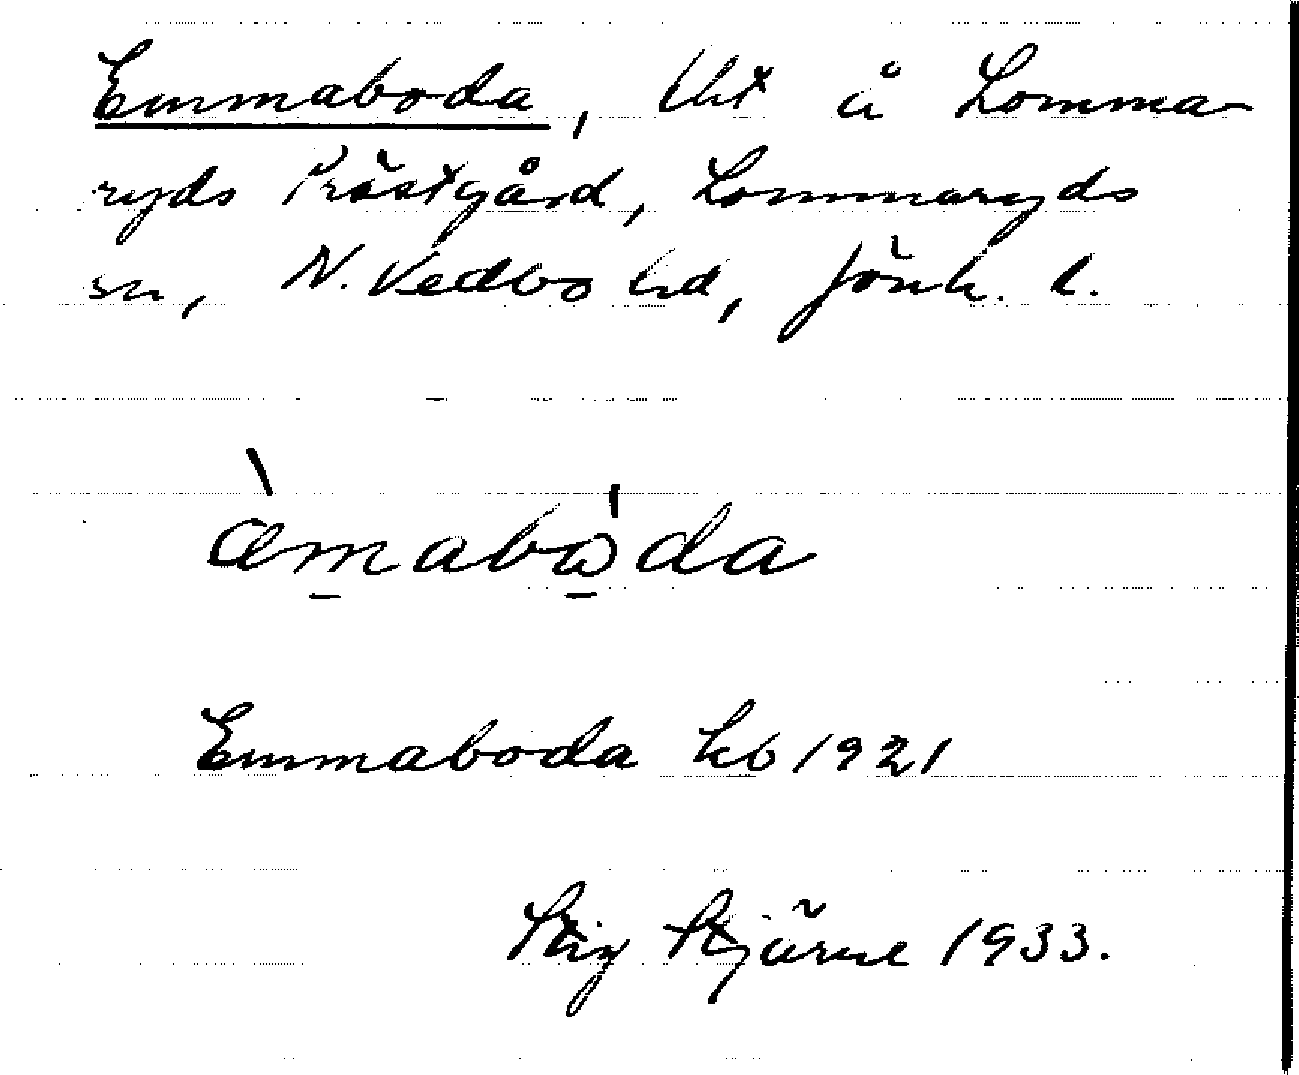 Emmaboda, Uht å Lomma-
ryds Prästgård, Lommaryds
sn, N. Vedbo hd, Jönk. l.
æ̀m̲abώ̲da
Emmaboda kb 1921
Stig Stjärne 1933.